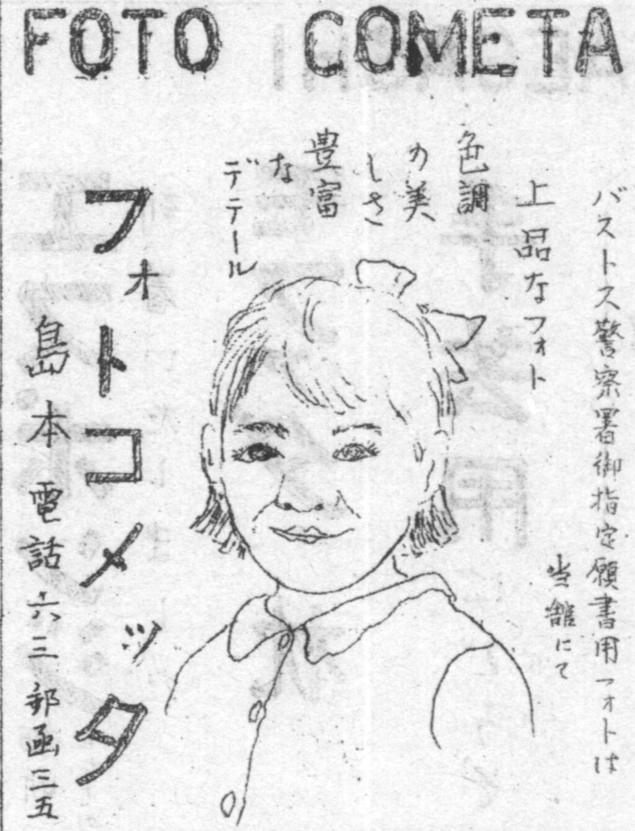 FOTO COMETA
バストス警察署御指定願書用フォトは
当舘にて
上品なフォト
色調
の美
しさ
豊富
な
デテール
フォトコメッタ
島本 電話六三 郵函三五